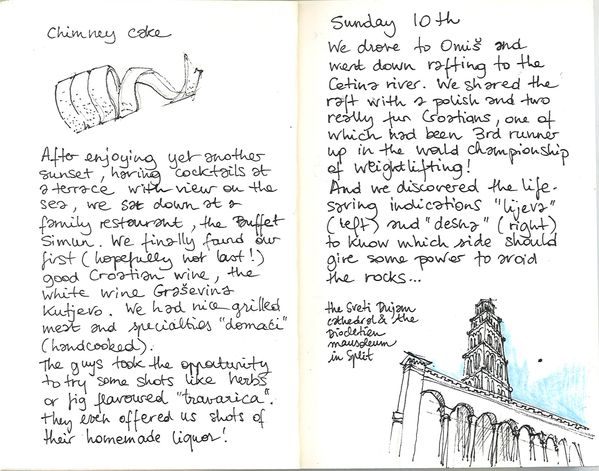 Chimney cake
After enjoying yet another
sunset, having cocktails at
a terrace with view on the
sea, we sat down at a
family restaurant, the Buffet
Simun. We finally found our
first (hopefully not last!)
good Croatian wine, the
white wine Graševina
Kutjevo. We had nice grilled
meat and specialties "domaći"
(handcooked).
The guys took the opportunity
to try some shots like herbs
or fig flavoured "travarica".
They even offered us shots of
their homemade liquor!
Sunday 10th
We drove to Omiš and
went down rafting to the
Cetina river. We shared the
raft with a polish and two
really fun Croatians, one of
which had been 3rd runner
up in the world championship
of weightlifting!
And we discovered the life-
saving indications "lijeva"
(left) and "desna" (right)
to know which side should
give some power to avoid
the rocks...
the Sveti Dujam
cathedral & the
Diocletien
mausoleum
in Split